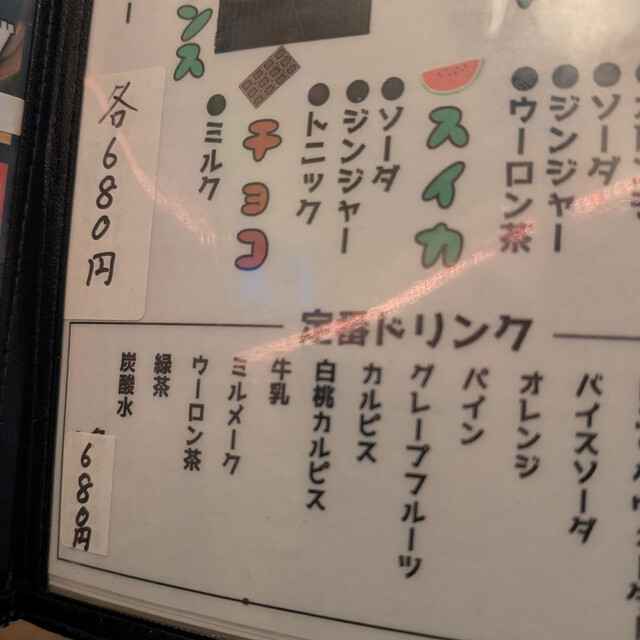 ウーロン茶
ジンジャー
ソーダ
スイカ
ソーダ
ジンジャー
トニック
チョコ
ミルク
ンス
各680円
定番ドリンク
バイスソーダ
オレンジ
パイン
グレープフルーツ
カルピス
白桃カルピス
牛乳
ミルメーク
ウーロン茶
緑茶
炭酸水
680円